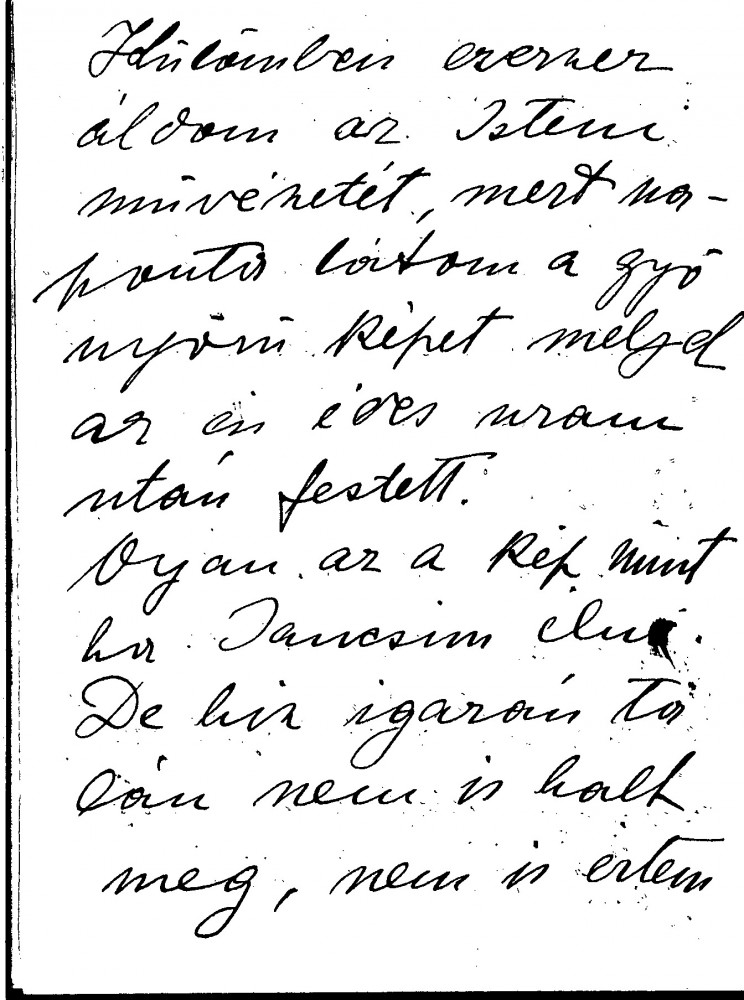 Külömben ezerszer
áldom az Isteni
müvészetét, mert na-
ponta látom a gyö
nyörü képet melyet
az én édes uram
után festett.
Olyan az a kép mint
ha Jancsim élne.
De hisz igazán ta
lán nem is halt
meg, nem is értem